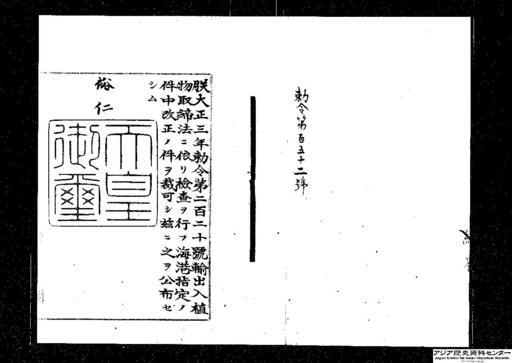 勅令第百五十二號
朕大正三年勅令第二百二十號輸出入植
物取締法ニ依リ檢査ヲ行フ海港指定ノ
件中改正ノ件ヲ裁可シ茲ニ之ヲ公布セ
シム
裕仁
天皇
御璽
アジア歴史資料センター
Japan Center for Asian Historical Records